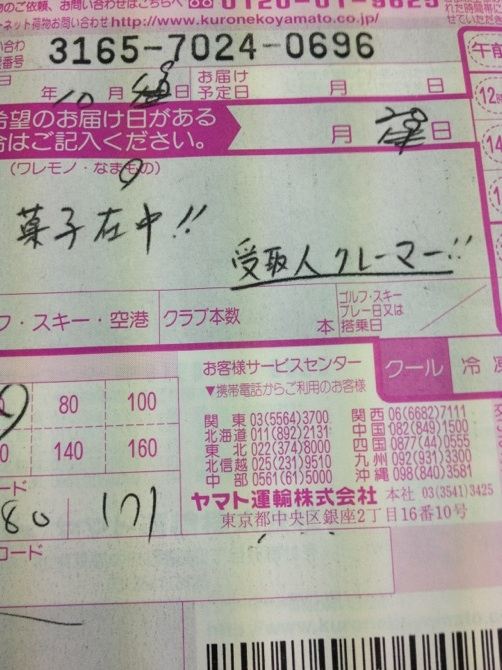 のご依頼、お問い合わせはこちらへ 0120-01-9625
ネット荷物お問い合わせ http://www.kuronekoyamato.co.jp/
3165-7024-0696
年 10 月 日 お届け予定日
希望のお届け日がある 月 日
合はご記入ください。
(ワレモノ・なまもの)
菓子在中!!
受取人クレーマー!!
フ・スキー・空港 クラブ本数 本 ゴルフ・スキー
プレー日又は
搭乗日
お客様サービスセンター クール 冷凍
▼携帯電話からご利用のお客様
80 100
140 160
関東 03(5564)3700 関西 06(6682)7111
北海道 011(892)2131 中国 082(849)1500
東北 022(374)8000 四国 0877(44)0555
北信越 025(231)9510 九州 092(931)3300
中部 0561(61)5000 沖縄 098(840)3581
ヤマト運輸株式会社 本社 03(3541)3425
東京都中央区銀座2丁目16番10号
コード
http://www.kuronekoyamato
午前